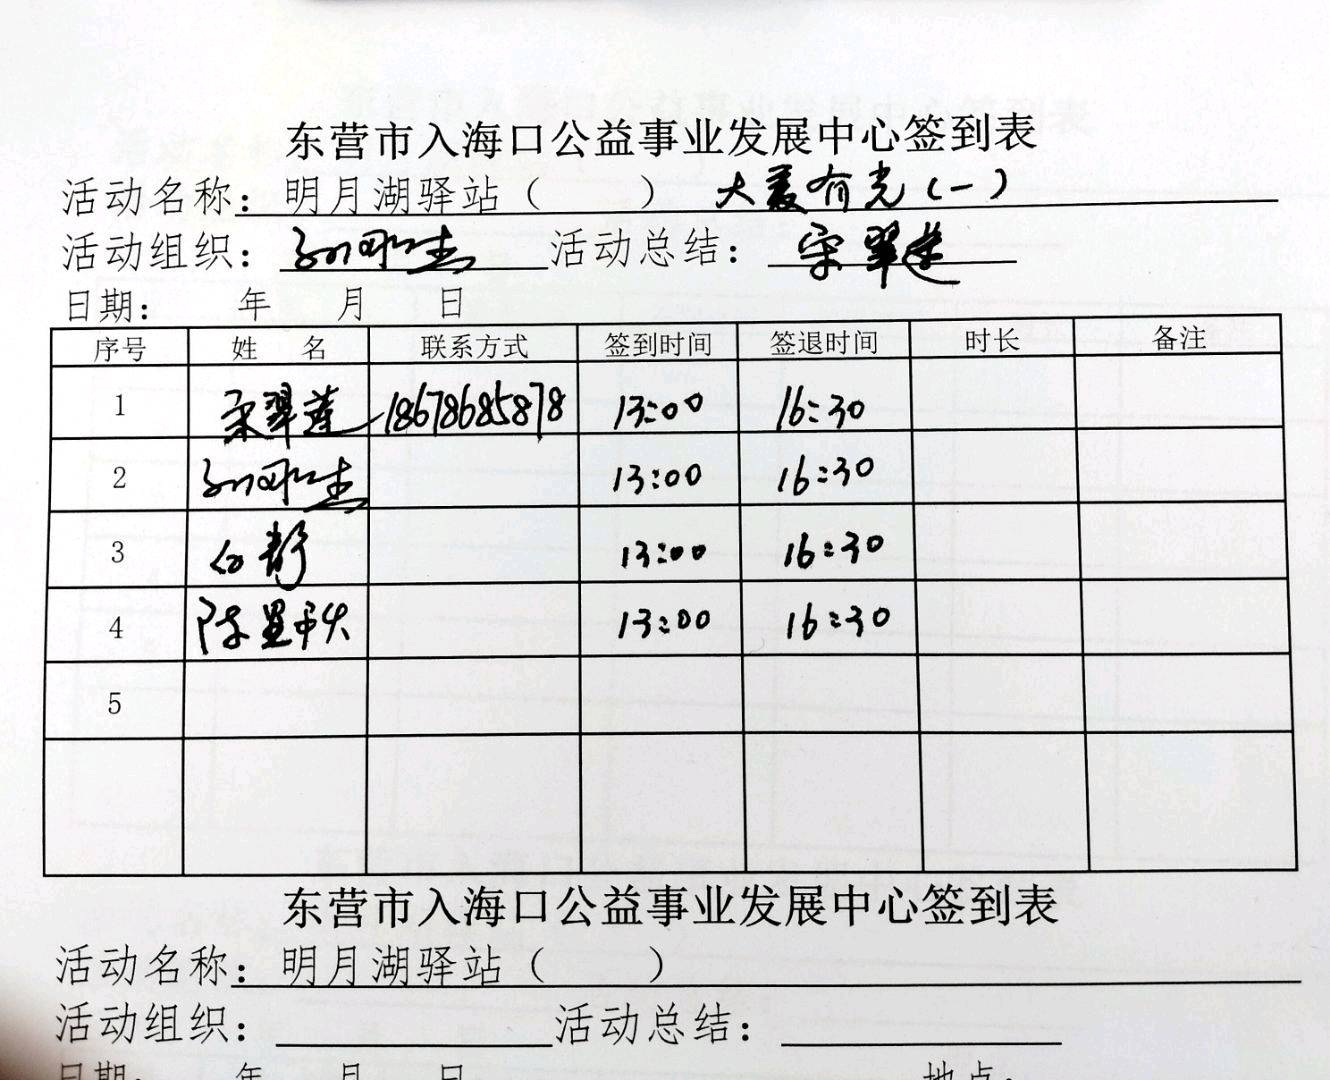 东营市入海口公益事业发展中心签到表
活动名称：明月湖驿站（ ） 大美有光（一）
活动组织：孙刚杰 活动总结：宋翠莲
日期： 年 月 日
序号 姓 名 联系方式 签到时间 签退时间 时长 备注
1 宋翠莲 18678685878 13:00 16:30
2 孙刚杰 13:00 16:30
3 白静 13:00 16:30
4 陈 13:00 16:30
5
东营市入海口公益事业发展中心签到表
活动名称：明月湖驿站（ ）
活动组织： 活动总结：
日期： 年 月 日 地点：